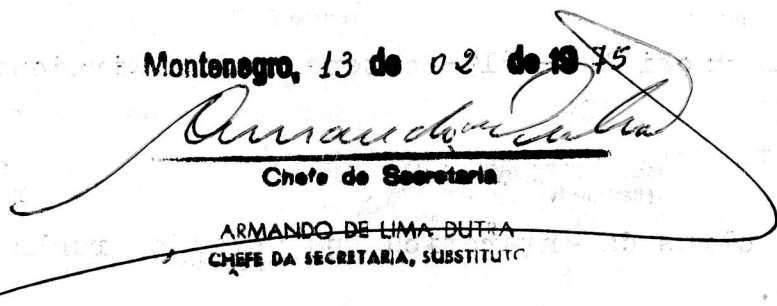 Montenegro, 13 de 02 de 1975
Armando de Lima Dutra
Chefe de Secretaria
ARMANDO DE LIMA DUTRA
CHEFE DA SECRETARIA, SUBSTITUTO